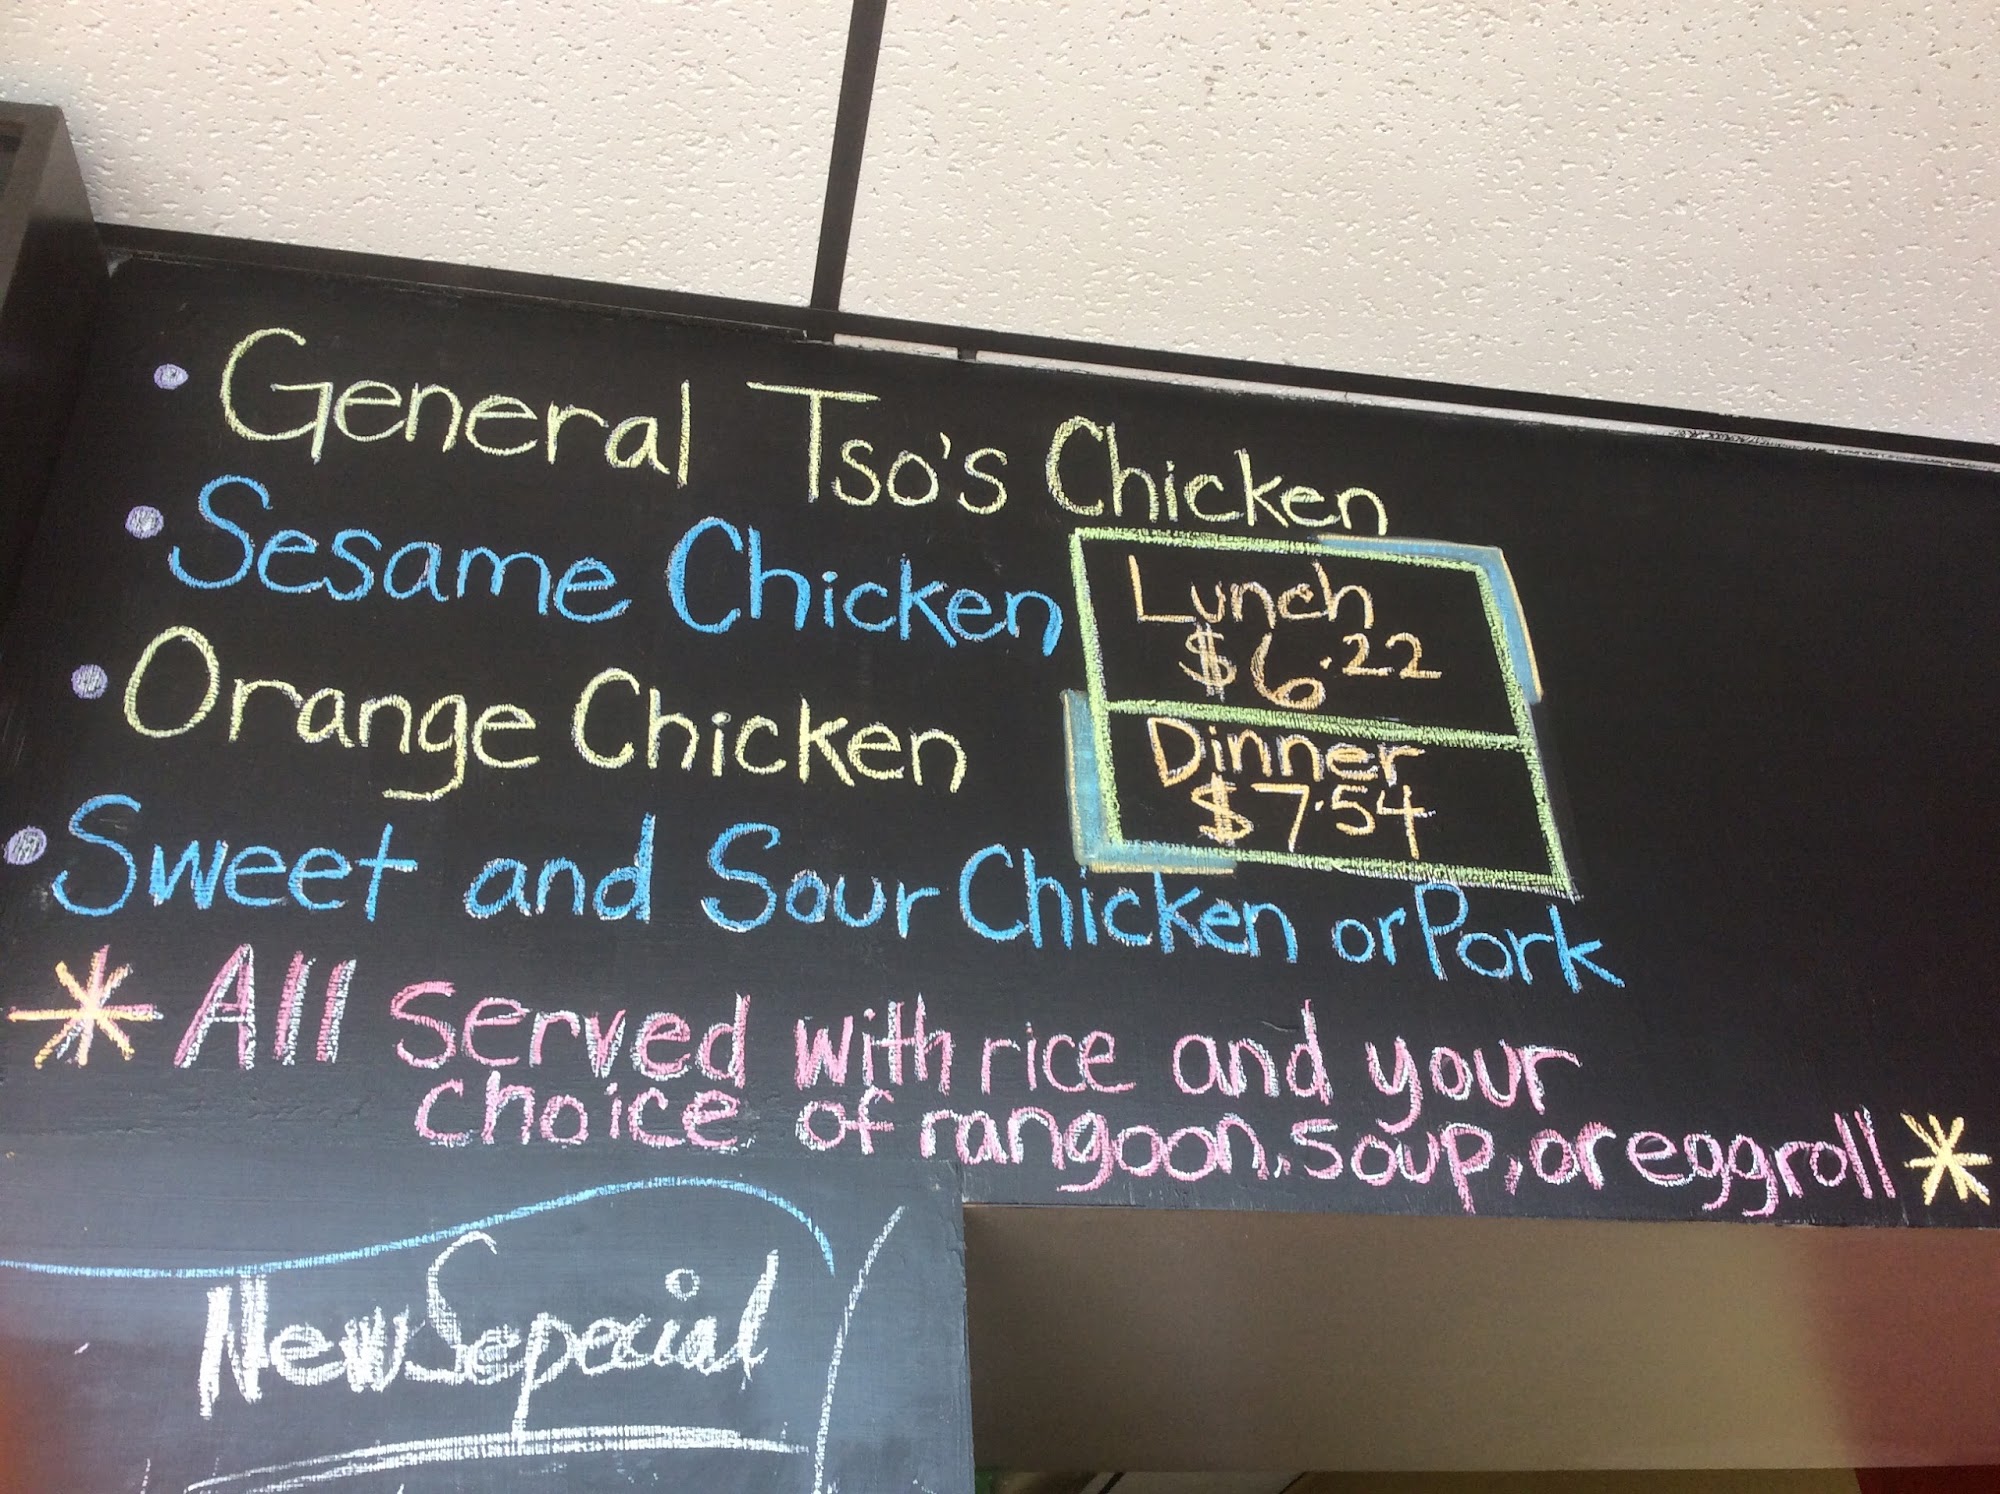 • General Tso's Chicken
• Sesame Chicken
Lunch
$6.22
• Orange Chicken
Dinner
$7.54
• Sweet and Sour Chicken or Pork
* All served with rice and your
choice of rangoon, soup, or eggroll *
New Sepecial